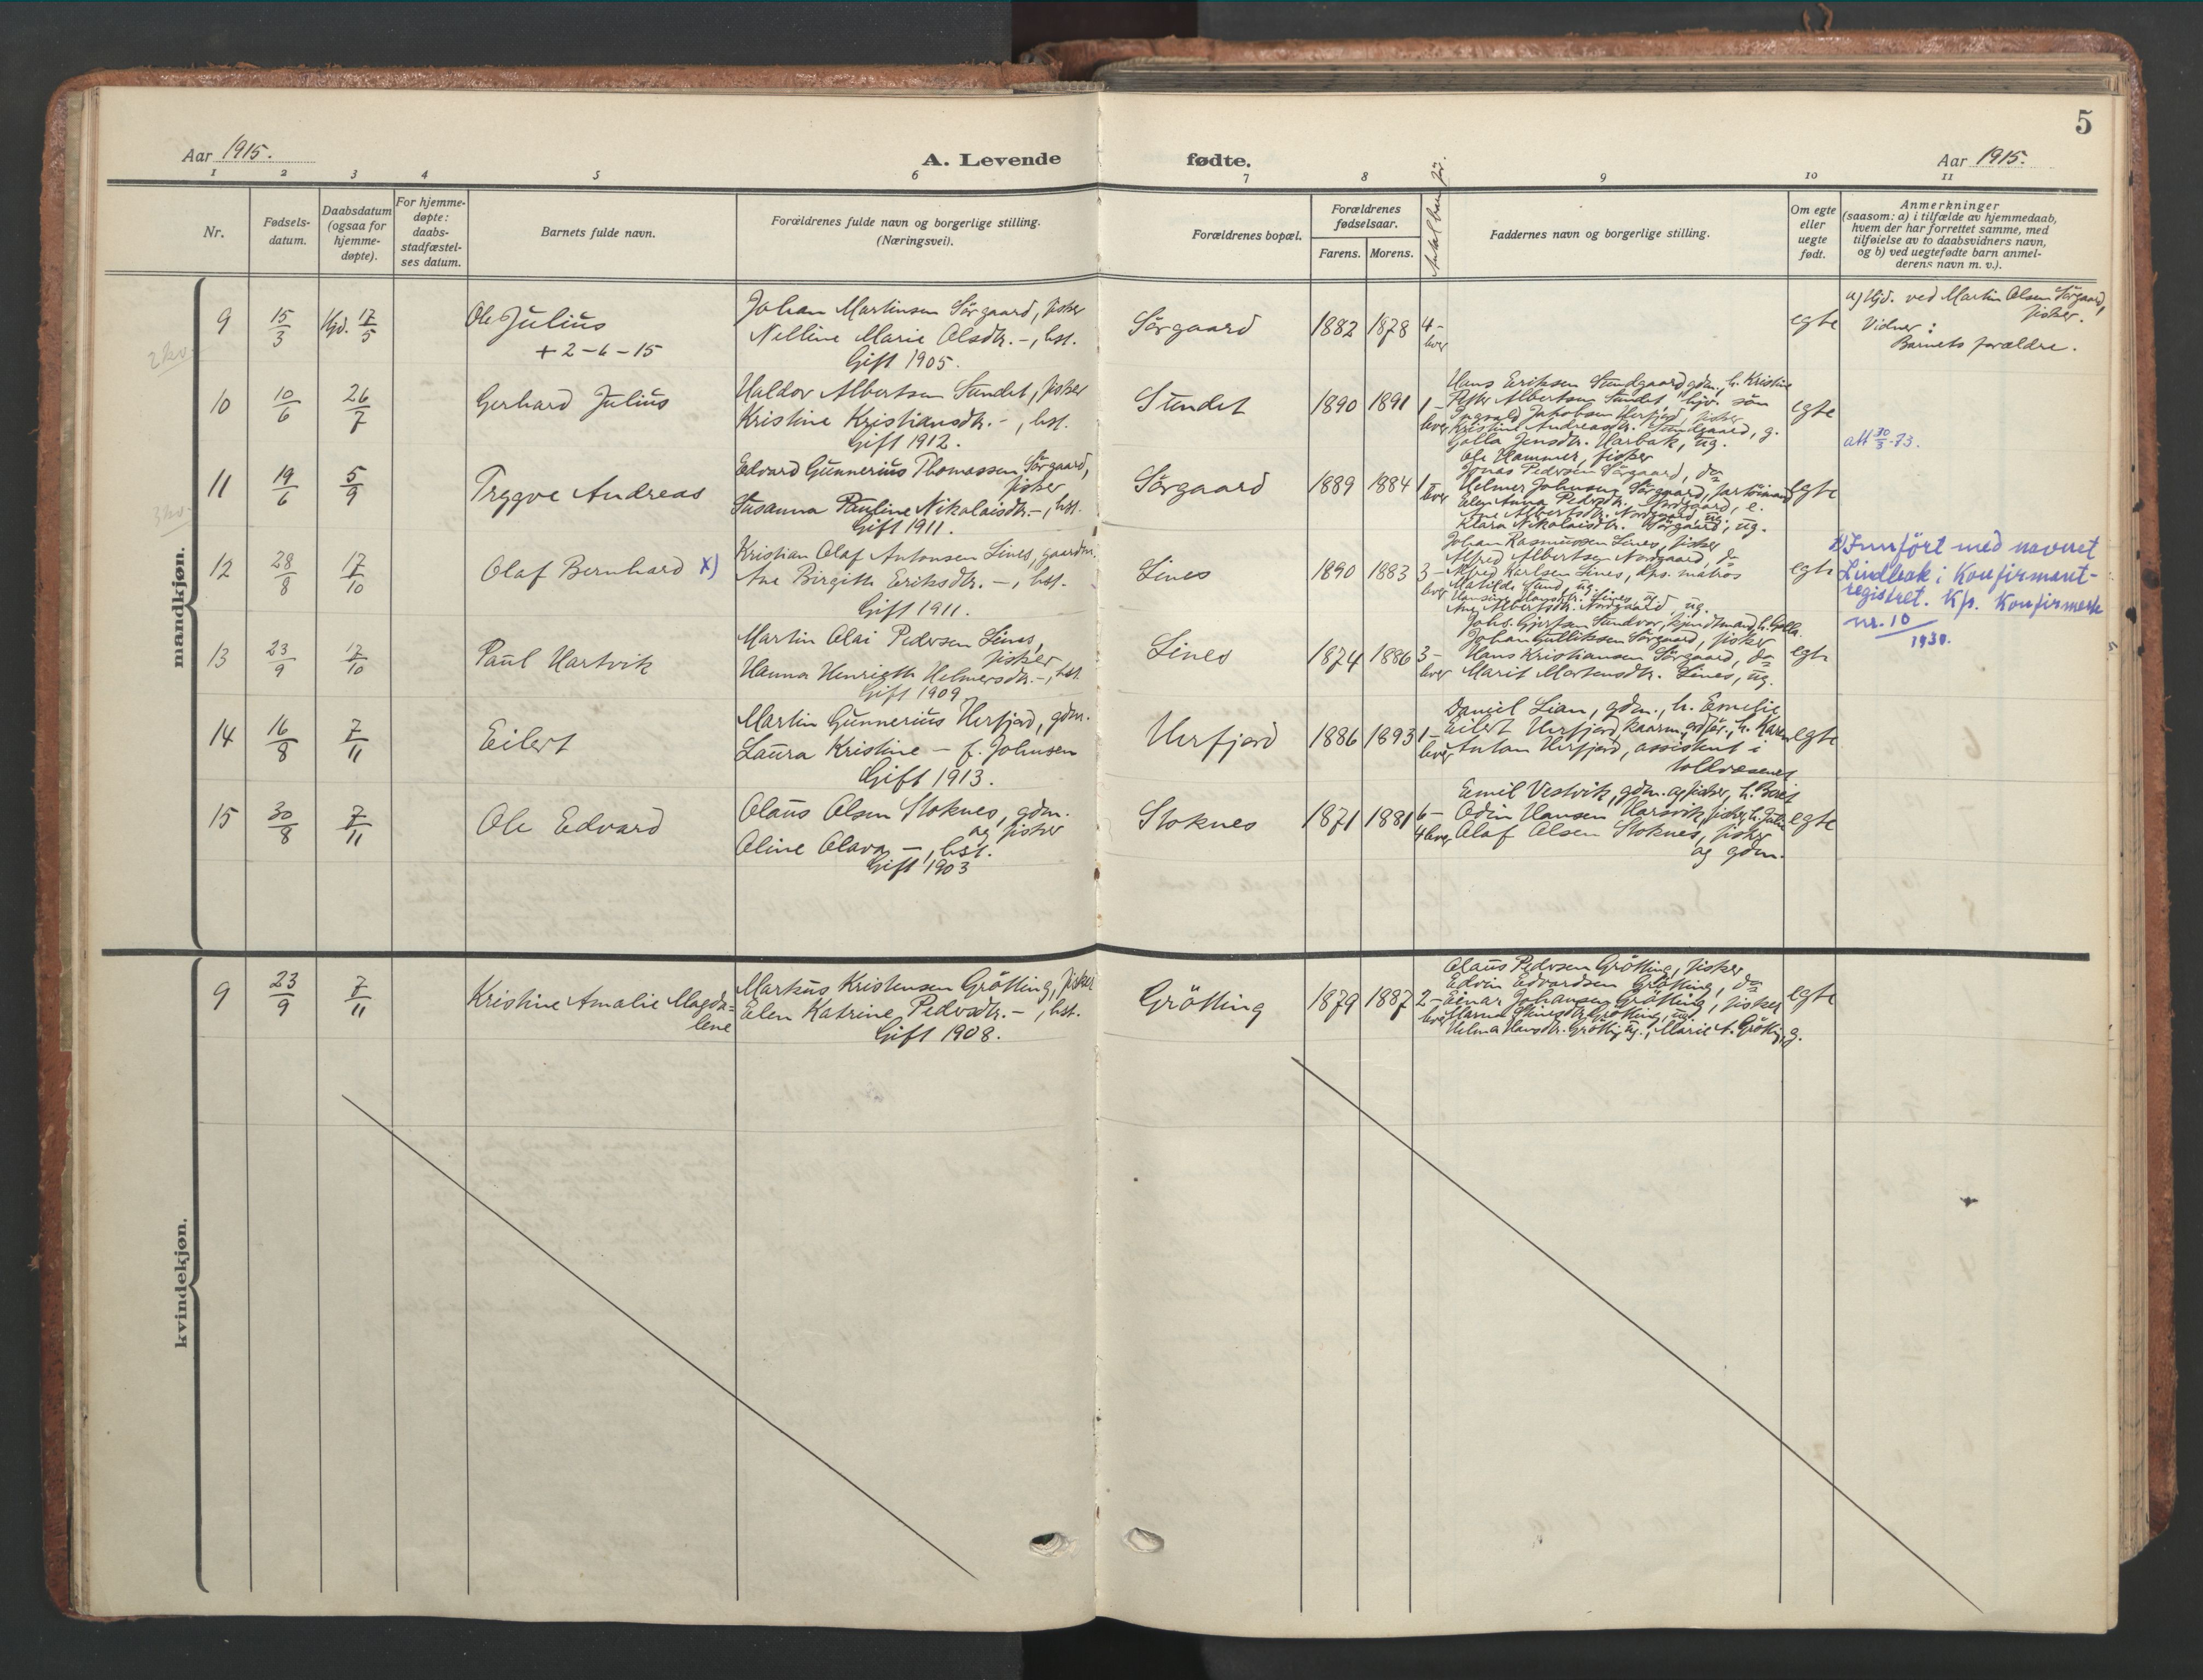 5
Aar 1915.
A. Levende fødte.
Aar 1915.
1 2 3 4 5 6 7 8 9 10 11
Nr.
Fødsels-
datum.
Daabsdatum
(ogsaa for
hjemme-
døpte).
For hjemme-
døpte:
daabs-
stadfæstel-
ses datum.
Barnets fulde navn.
Forældrenes fulde navn og borgerlige stilling.
(Næringsvei).
Forældrenes bopæl.
Forældrenes
fødselsaar.
Farens. Morens.
Antal barn før.
Faddernes navn og borgerlige stilling.
Om egte
eller
uegte
født.
Anmerkninger
(saasom: a) i tilfælde av hjemmedaab,
hvem der har forrettet samme, med
tilføielse av to daabsvidners navn,
og b) ved uegtefødte barn anmel-
derens navn m. v.).
mandkjøn.
9 15/3 Hjd. 17/5
Ole Julius
+ 2-6-15
Johan Martinsen Sörgaard, fisker
Nelline Marie Olsdtr. -, hst.
Gift 1905.
Sörgaard 1882 1878 4-
lever
egte
a) Hjd. ved Martin Olsen Sörgaard,
fisker.
Vidner:
Barnets forældre.
10 10/6 26/7
Gerhard Julius
Haldor Albertsen Sundet, fisker
Kristine Kristiansdtr. -, hst.
Gift 1912.
Sundet 1890 1891 1-
lever
Hans Eriksen Sundgaard, gdm., h. Kristine
Peter Albertsen Sundet, hjv. sön
Ingvald Jakobsen Herfjord, fisker
Kristine Andreasdtr. Sundgaard, g.
Golla Jensdtr. Harbak, ug.
egte
att 30/3-73.
11 19/6 5/9
Tryggve Andreas
Edvard Gunnerius Thomassen Sörgaard,
fisker
Susanna Pauline Nikolaisdtr. -, hst.
Gift 1911.
Sörgaard 1889 1884 1-
lever
Ole Hammer, fisker
Jonas Pedersen Sörgaard, do
Helmer Johnsen Sörgaard,
Elen Anna Pedersdtr. Nordgaard, e.
Ane Albertsdtr. Nordgaard, ug.
Klara Nikolaisdtr. Sörgaard, ug.
egte
12 28/8 17/10
Olaf Bernhard x)
Kristian Olaf Antonsen Lines, gaardm.
Ane Birgith Eriksdtr. -, hst.
Gift 1911.
Lines 1890 1883 3-
lever
Johan Rasmussen Lines, fisker
Alfred Albertsen Nordgaard, do
Alfred Karlsen Lines, dps. matros
Matilde Sund, ug.
Hansine Hansdtr. Lines, ug.
Ane Albertsdtr. Nordgaard, ug.
egte
x) Innfört med navnet
Lindbak i Konfirmant-
registret. Kfr. Konfirmerte
nr. 10
1930.
13 23/9 17/10
Paul Hartvik
Martin Olai Pedersen Lines,
fisker
Hanna Henrigth Helmersdtr. -, hst.
Gift 1909
Lines 1874 1886 3-
lever
Johan Gulliksen Sörgaard, fisker
Hans Kristiansen Sörgaard, do
Marit Martensdtr. Lines, ug.
egte
14 16/8 7/11
Eilert
Martin Gunnerius Herfjord, gdm.
Laura Kristine - f. Johnsen
Gift 1913.
Herfjord 1886 1893 1-
lever
Daniel Lian, gdm., h. Emelie
Eilert Herfjord, kaarm., h. Karen
Anton Herfjord, assistent i
toldvæsenet
egte
15 30/8 7/11
Ole Edvard
Olaus Olsen Stoknes, gdm.
og fisker
Oline Olava -, hst.
Gift 1903
Stoknes 1871 1881 6-
4 lever
Emil Vestvik, gdm. og fisker, h. Berit
Odin Hansen Harsvik, fisker, h. Julie
Olaf Olsen Stoknes, fisker
og gdm.
egte
kvindekjøn.
9 23/9 7/11
Kristine Amalie Magda-
lene
Markus Kristensen Grötting, fisker
Elen Katrine Pedersdtr. -, hst.
Gift 1908.
Grötting 1879 1887 2-
lever
Olaus Pedersen Grötting, fisker
Edvin Edvardsen Grötting, do
Einar Johansen Grötting, fisker
Helma Hansdtr. Grötting, ug., Marie A. Grötting, g.
egte